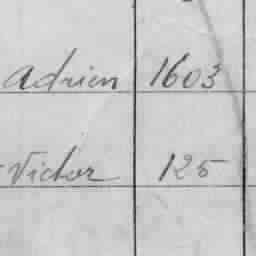 Adrien 1603
Victor 125